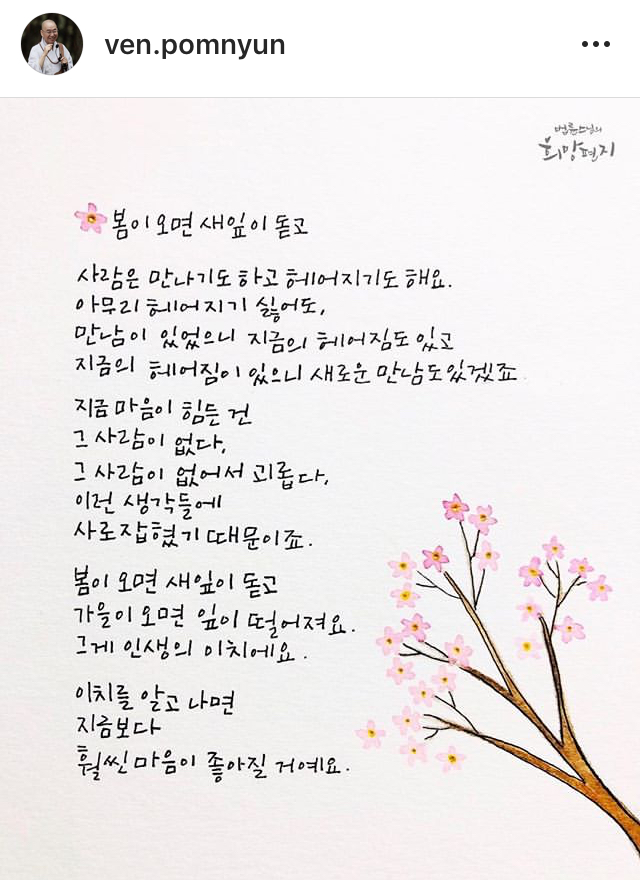 ven.pomnyun
법륜스님의
희망편지
봄이 오면 새잎이 돋고
사람은 만나기도 하고 헤어지기도 해요.
아무리 헤어지기 싫어도,
만남이 있었으니 지금의 헤어짐도 있고
지금의 헤어짐이 있으니 새로운 만남도 있겠죠.
지금 마음이 힘든 건
그 사람이 없다,
그 사람이 없어서 괴롭다,
이런 생각들에
사로잡혔기 때문이죠.
봄이 오면 새잎이 돋고
가을이 오면 잎이 떨어져요.
그게 인생의 이치에요.
이치를 알고 나면
지금보다
훨씬 마음이 좋아질 거예요.